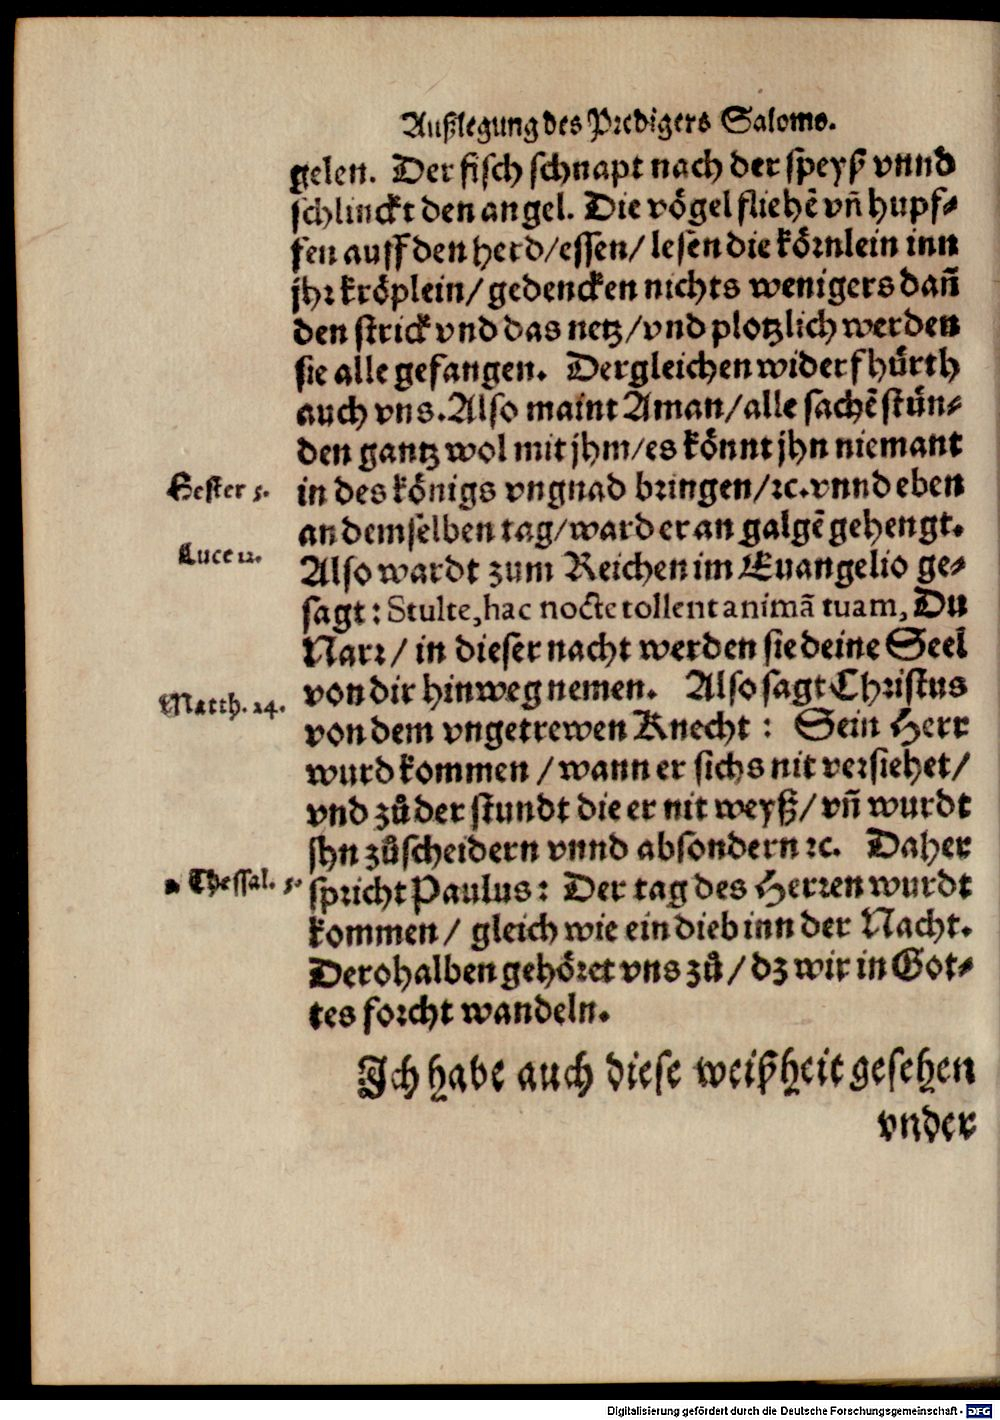 Außlegung des Predigers Salomo.
gelen. Der fisch schnapt nach der speyß vnnd
schlinckt den angel. Die vögel fliehē vñ hupf⸗
fen auff den herd/essen/ lesen die körnlein inn
jhr kröplein/ gedencken nichts wenigers dañ
den strick vnd das netz/vnd plotzlich werden
sie alle gefangen. Dergleichen widerfhürth
auch vns. Also maint Aman/alle sachē stün⸗
den gantz wol mit jhm/es könnt jhn niemant
Hester 5.
in des königs vngnad bringen/ꝛc. vnnd eben
an demselben tag/ward er an galgē gehengt.
Luce 12.
Also wardt zum Reichen im Euangelio ge⸗
sagt: Stulte, hac nocte tollent animā tuam, Du
Narr/ in dieser nacht werden sie deine Seel
von dir hinweg nemen. Also sagt Christus
Matth. 24.
von dem vngetrewen Knecht: Sein Herr
wurd kommen /wann er sichs nit versiehet/
vnd zů der stundt die er nit weyß/ vñ wurdt
jhn zůscheidern vnnd absondern ꝛc. Daher
Thessal. 5.
spricht Paulus: Der tag des Herren wurdt
kommen/ gleich wie ein dieb inn der Nacht.
Derohalben gehöret vns zů/ dz wir in Got⸗
tes forcht wandeln.
Ich habe auch diese weißheit gesehen
vnder
Digitalisierung gefördert durch die Deutsche Forschungsgemeinschaft - DFG